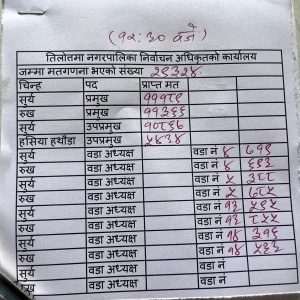 (१२:३० बजे)
तिलोत्तमा नगरपालिका निर्वाचन अधिकृतको कार्यालय
जम्मा मतगणना भएको संख्या २९३२४
चिन्ह पद प्राप्त मत
सुर्य प्रमुख ११९८९
रुख प्रमुख ११३६६
सुर्य उपप्रमुख १०८६७
हसिया हथौडा उपप्रमुख ५४३४
सुर्य वडा अध्यक्ष वडा नं ४ ७१९
रुख वडा अध्यक्ष वडा नं ४ ६९३
सुर्य वडा अध्यक्ष वडा नं ५ ३८८
रुख वडा अध्यक्ष वडा नं ५
सुर्य वडा अध्यक्ष वडा नं १३ ५९६
रुख वडा अध्यक्ष वडा नं १३
सुर्य वडा अध्यक्ष वडा नं १४ ३१६
रुख वडा अध्यक्ष वडा नं १४ ५९३
सुर्य वडा अध्यक्ष वडा नं
रुख वडा अध्यक्ष वडा नं